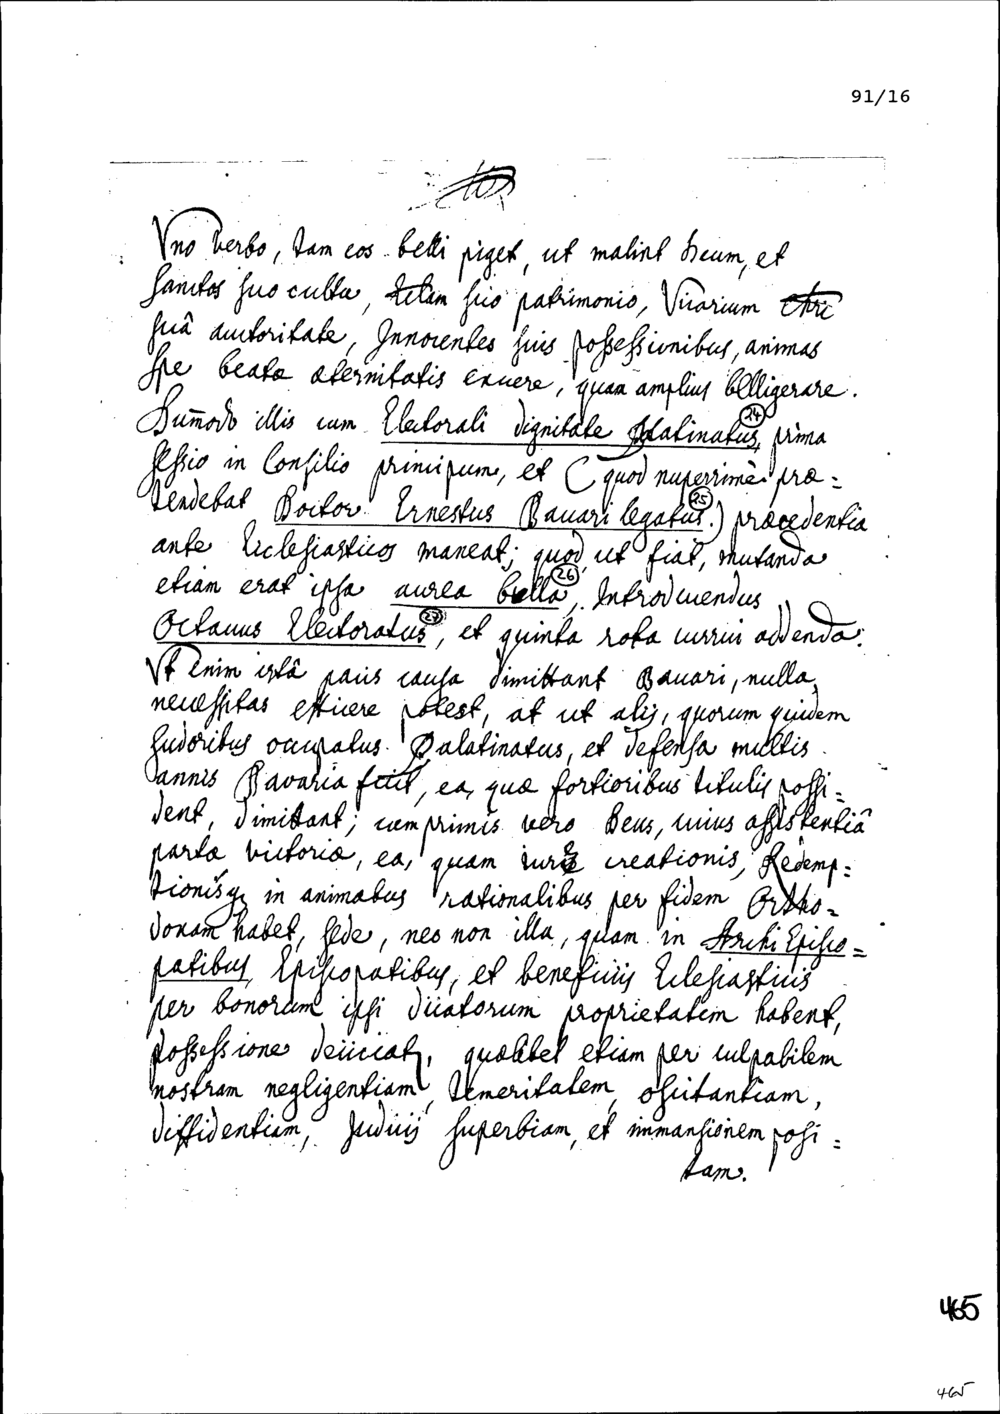 91/16
Vno verbo, tam eos belli piget, ut malint Deum, et
sanctos suo cultu, suo patrimonio, Vicarium Chri
suâ auctoritate, Innocentes suis possessionibus, animas
spe beatæ æternitatis exuere, quam amplius belligerare.
Dum̄odo illis cum Electorali dignitate Palatinatus (24), prima
sessio in Consilio principum, et (quod nuperrimè præ=
tendebat Doctor Ernestus Bauari legatus (25).) præcedentia
ante Ecclesiasticos maneat; quod ut fiat, mutanda
etiam erat ipsa aurea bulla (26), Introducendus
Octauus Electoratus (27), et quinta rota currui addenda:
Vt enim istâ pacis causa dimittant Bauari, nulla
necessitas efficere potest, at ut alij, quorum quidem
sudoribus occupatus Palatinatus, et defensa multis
annis Bavaria fuit, ea, quæ fortioribus titulis possi=
dent, dimittant; cum primis vero Deus, cuius assistentiâ
parta victoria, ea, quam iure creationis, Redemp=
tionisq; in animabus rationalibus per fidem Ortho=
doxam habet, sede, nec non illa, quam in ArchiEpisco=
patibus, Episcopatibus, et beneficiis Eclesiasticis
per bonorum ipsi dicatorum proprietatem habent,
possessione deiiciat, qualibet etiam per culpabilem
nostram negligentiam, temeritatem, oscitantiam,
diffidentiam, Judicij superbiam, et immansionem posi=
tam.
465
465